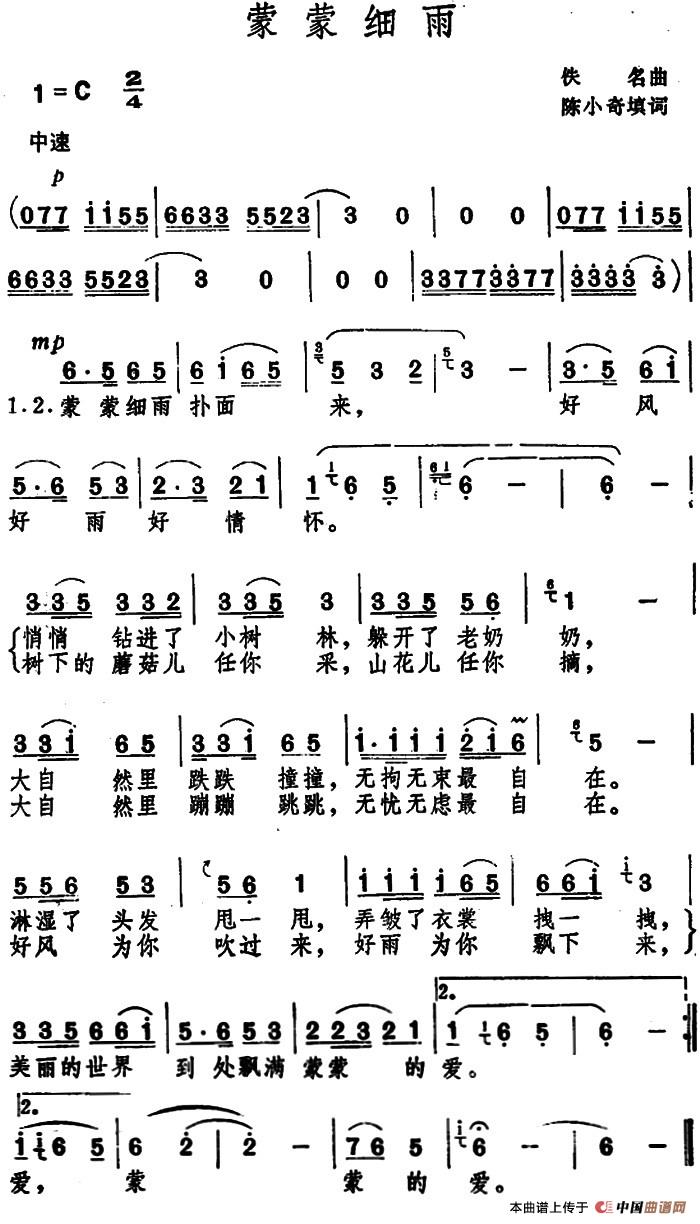 蒙蒙细雨
1=C 2/4
佚 名曲
陈小奇填词
中速
p
(077 i i55 | 6633 5523 | 3 0 | 0 0 | 077 i i55 |
6633 5523 | 3 0 | 0 0 | 3377 3377 | 3333 3 ) |
mp
6·5 65 | 6 i 65 | 5 3 2 | 3 - | 3·5 6i |
1.2.蒙 蒙细雨 扑面 来, 好 风
5·6 53 | 2·3 21 | 1 6 5 | 6 - | 6 - |
好 雨 好 情 怀。
335 332 | 335 3 | 335 56 | 1 - |
悄悄 钻进了 小树 林,躲开了 老奶 奶,
树下的 蘑菇儿 任你 采,山花儿 任你 摘,
33i 65 | 33i 65 | i·i i i 2i6 | 5 - |
大自 然里 跌跌 撞撞,无拘无束最 自 在。
大自 然里 蹦蹦 跳跳,无忧无虑最 自 在。
556 53 | 56 1 | i i i i65 | 66i 3 |
淋湿了 头发 甩一 甩, 弄皱了 衣裳 拽一 拽,
好风 为你 吹过 来,好雨 为你 飘下 来,
2.
335 66i | 5·6 53 | 2232 21 | 1 6 5 | 6 - :|
美丽的世界 到 处飘满 蒙蒙 的 爱。
2.
i i6 5 | 6 2 | 2 - | 76 5 | 6 - | 6 - ||
爱, 蒙 蒙 的 爱。
本曲谱上传于 中国曲谱网